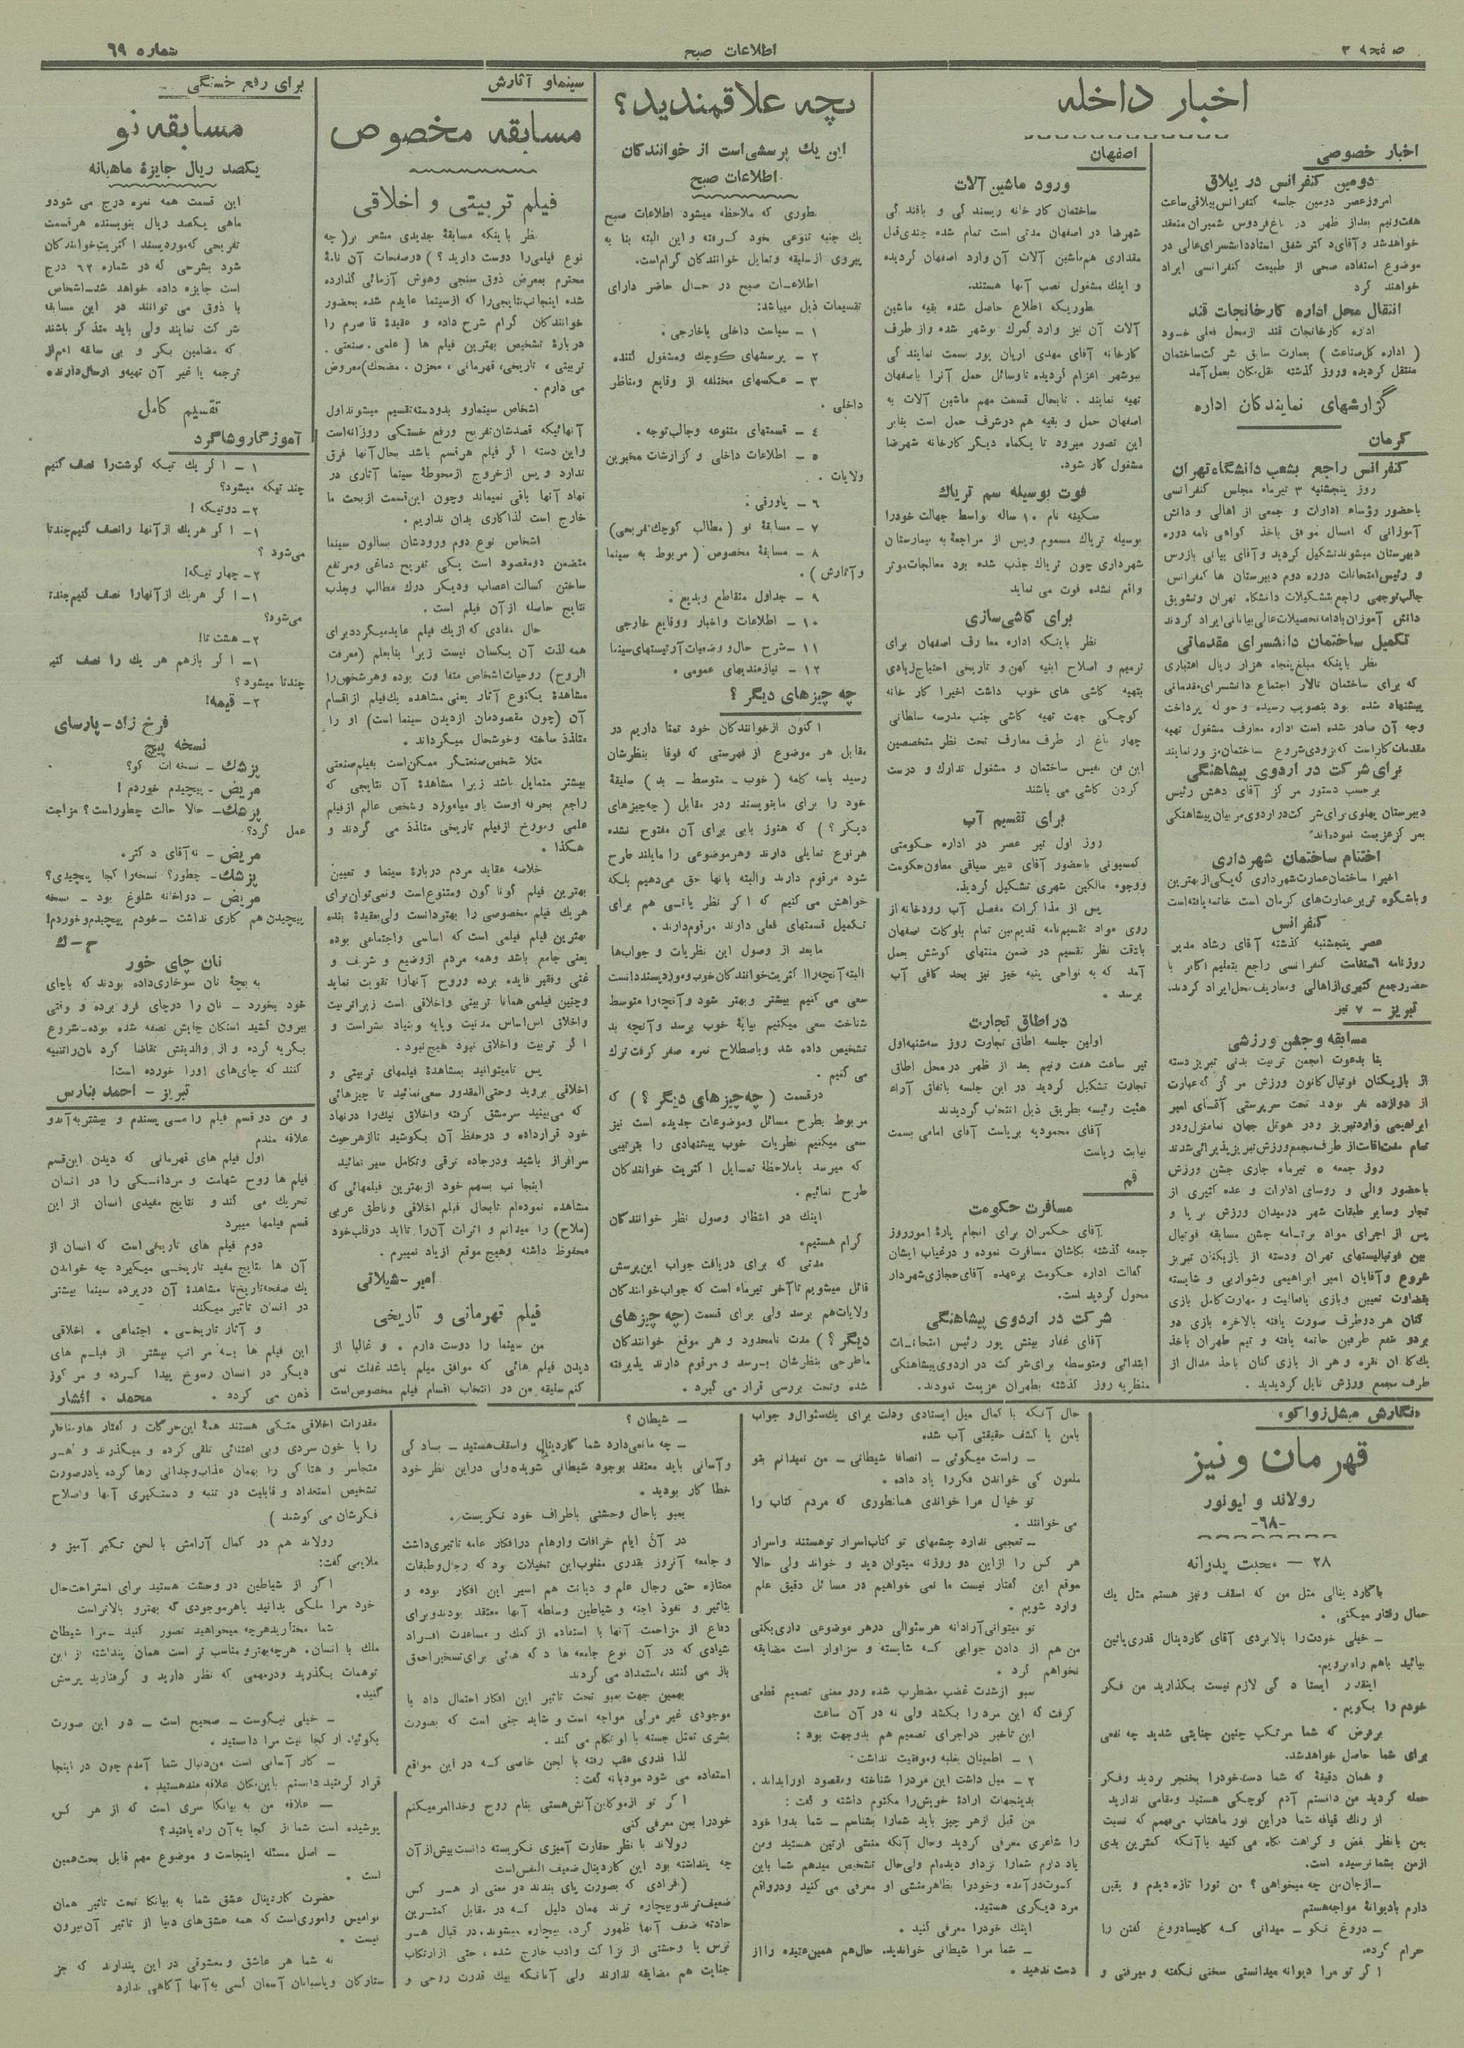 صفحه ۲
اطلاعات صبح
شماره ۶۹
اخبار داخله
اخبار خصوصی
دومین کنفرانس در ییلاق
امروزعصر دومین جلسه کنفرانس ییلاقی ساعت
هفت‌ونیم بعداز ظهر در باغ فردوس شمیران منعقد
خواهدشد و آقای دکتر شفق استاد دانشسرای عالی در
موضوع استفاده صحی از طبیعت کنفرانسی ایراد
خواهند کرد
انتقال محل اداره کارخانجات قند
اداره کارخانجات قند ازمحل فعلی خود
( اداره کل صناعت ) بعمارت سابق شرکت ساختمان
منتقل گردیده وروز گذشته نقل مکان بعمل آمد
گزارشهای نمایندکان اداره
کرمان
کنفرانس راجع بشعب دانشگاه تهران
روز پنجشنبه ۳ تیرماه مجلس کنفرانسی
باحضور رؤساء ادارات و جمعی از اهالی و دانش
آموزانی که امسال موفق باخذ گواهی نامه دوره
دبیرستان میشوند تشکیل گردید وآقای بیانی بازرس
و رئیس امتحانات دوره دوم دبیرستان ها کنفرانس
جالب توجهی راجع بتشکیلات دانشگاه تهران وتشویق
دانش آموزان بادامه تحصیلات عالی بیاناتی ایراد کردند
تکمیل ساختمان دانشسرای مقدماتی
نظر باینکه مبلغ پنجاه هزار ریال اعتباری
که برای ساختمان تالار اجتماع دانشسرای مقدماتی
پیشنهاد شده بود بتصویب رسیده و حواله پرداخت
وجه آن صادر شده است اداره معارف مشغول تهیه
مقدمات کاراست که بزودی شروع ساختمان مزبور نمایند
برای شرکت در اردوی پیشاهنگی
برحسب دستور مرکز آقای دهش رئیس
دبیرستان پهلوی برای شرکت در اردوی مربیان پیشاهنگی
بمرکز عزیمت نموده‌اند
اختتام ساختمان شهرداری
اخیرا ساختمان عمارت شهرداری که یکی از بهترین
وباشکوه ترین عمارت‌های کرمان است خاتمه یافته است
کنفرانس
عصر پنجشنبه گذشته آقای رشاد مدیر
روزنامه استقامت کنفرانسی راجع بتعلیم اکابر با
حضور جمع کثیری از اهالی و معاریف محل ایراد کردند.
تبریز – ۷ تیر
مسابقه وجشن ورزشی
بنا بدعوت انجمن تربیت بدنی تبریز دسته
از بازیکنان فوتبال کانون ورزش مرکز که عبارت
از دوازده نفر بودند تحت سرپرستی آقای امیر
ابراهیمی وارد تبریز ودر هوتل جهان نما منزل ودر
تمام مدت اقامت از طرف مجمع ورزش تبریز پذیرائی شدند
روز جمعه ۵ تیرماه جاری جشن ورزش
باحضور والی و روسای ادارات و عده کثیری از
تجار وسایر طبقات شهر درمیدان ورزش برپا و
پس از اجرای مواد برنامه جشن مسابقه فوتبال
بین فوتبالیستهای تهران ودسته از بازیکنان تبریز
شروع وآقایان امیر ابراهیمی و شواربی و شایسته
بقضاوت تعیین وبازی بافعالیت و مهارت کامل بازی
کنان هر دوطرف صورت یافته بالاخره بازی دو
بردو بنفع طرفین خاتمه یافته و تیم طهران باخذ
یک گلدان نقره و هر از بازی کنان باخذ مدال از
طرف مجمع ورزش نایل گردیدند .
اصفهان
ورود ماشین آلات
ساختمان کارخانه ریسندگی و بافندگی
شهرضا در اصفهان مدتی است تمام شده چندی قبل
مقداری هم ماشین آلات آن وارد اصفهان گردیده
و اینک مشغول نصب آنها هستند.
بطوریکه اطلاع حاصل شده بقیه ماشین
آلات آن نیز وارد گمرک بوشهر شده واز طرف
کارخانه آقای مهدی اریان پور بسمت نمایندگی
ببوشهر اعزام گردیده تاوسائل حمل آنرا باصفهان
تهیه نمایند . تابحال قسمت مهم ماشین آلات به
اصفهان حمل و بقیه هم درشرف حمل است بنابر
این تصور میرود تا یکماه دیگر کارخانه شهرضا
مشغول کار شود.
فوت بوسیله سم تریاک
سکینه نام ۱۰ ساله بواسط جهالت خودرا
بوسیله تریاک مسموم وپس از مراجعهٔ به بیمارستان
شهرداری چون تریاک جذب شده بود معالجات موثر
واقع نشده فوت می نماید
برای کاشی سازی
نظر باینکه اداره معارف اصفهان برای
ترمیم و اصلاح ابنیه کهن و تاریخی احتیاج زیادی
بتهیه کاشی های خوب داشت اخیرا کارخانه
کوچکی جهت تهیه کاشی جنب مدرسه سلطانی
چهارباغ از طرف معارف تحت نظر متخصصین
این فن نفیس ساختمان و مشغول تدارک و درست
کردن کاشی می باشند
برای تقسیم آب
روز اول تیر عصر در اداره حکومتی
کمیسیونی باحضور آقای دبیر سیاقی معاون حکومت
ووجوه مالکین شهری تشکیل گردید.
پس از مذاکرات مفصل آب رودخانه از
روی مواد تقسیم نامه قدیم بین تمام بلوکات اصفهان
بادقت نظر تقسیم در ضمن منتهای کوشش بعمل
آمد که به نواحی پنبه خیز نیز بحد کافی آب
برسد .
در اطاق تجارت
اولین جلسه اطاق تجارت روز سه‌شنبه اول
تیر ساعت هفت ونیم بعد از ظهر در محل اطاق
تجارت تشکیل گردید در این جلسه باتفاق آراء
هئیت رئیسه بطریق ذیل انتخاب گردیدند
آقای محمودیه بریاست آقای امامی بسمت
نیابت ریاست
قم
مسافرت حکومت
آقای حکمران برای انجام پارهٔ امور روز
جمعه گذشته بکاشان مسافرت نموده و درغیاب ایشان
کفالت اداره حکومت برعهده آقای حجازی شهردار
محول گردید است.
شرکت در اردوی پیشاهنگی
آقای غفار بینش پور رئیس امتحانات
ابتدائی ومتوسطه برای شرکت در اردوی پیشاهنگی
منظریه روز گذشته بطهران عزیمت نمودند.
بچه علاقمندید؟
این یک پرسشی است از خوانندکان
اطلاعات صبح
بطوری که ملاحظه میشود اطلاعات صبح
یک جنبه تنوعی بخود گرفته و این البته بنا به
پیروی از سلیقه وتمایل خوانندکان گرام است.
اطلاعات صبح در حال حاضر دارای
تقسیمات ذیل میباشد:
۱ – سیاست داخلی یاخارجی .
۲ – پرسشهای کوچک ومشغول کننده
۳ – عکسهای مختلفه از وقایع ومناظر
داخلی .
۴ – قسمتهای متنوعه وجالب توجه .
۵ – اطلاعات داخلی و گزارشات مخبرین
ولایات .
۶ – پاورقی .
۷ – مسابقهٔ نو ( مطالب کوچک تفریحی)
۸ – مسابقهٔ مخصوص ( مربوط به سینما
و آثارش ) .
۹ – جداول متقاطع وبدیع .
۱۰ – اطلاعات واخبار ووقایع خارجی
۱۱ – شرح حال و وضعیات آرتیستهای سینما
۱۲ – نیازمندیهای عمومی .
چه چیزهای دیگر ؟
اکنون ازخوانندکان خود تمنا داریم در
مقابل هر موضوع از فهرستی که فوقا بنظرشان
رسید باسه کلمه (خوب – متوسط – بد) سلیقهٔ
خود را برای مابنویسند ودر مقابل (چه چیزهای
دیگر ؟) که هنوز بابی برای آن مفتوح نشده
هر نوع تمایلی دارند وهر موضوعی را مایلند طرح
شود مرقوم دارند والبته بآنها حق می‌دهیم بلکه
خواهش می کنیم که اگر نظریاتی هم برای
تکمیل قسمتهای فعلی دارند مرقوم دارند.
مابعد از وصول این نظریات و جواب‌ها
البته آنچه را اکثریت خوانندکان خوب ومورد پسند دانست
سعی می کنیم بیشتر و بهتر شود و آنچه‌را متوسط
شناخت سعی میکنیم بپایهٔ خوب برسد و آنچه بد
تشخیص داده شد وباصطلاح نمره صفر گرفت ترک
می کنیم .
در قسمت ( چه چیزهای دیگر ؟ ) که
مربوط بطرح مسائل وموضوعات جدیده است نیز
سعی میکنیم نظریات خوب پیشنهادی را بترتیبی
که میرسد باملاحظهٔ تمایل اکثریت خوانندکان
طرح نمائیم .
اینک در انتظار وصول نظر خوانندکان
گرام هستیم.
مدتی که برای دریافت جواب این پرسش
قائل میشویم تا آخر تیرماه است که جواب خوانندکان
ولایات هم برسد ولی برای قسمت (چه چیزهای
دیگر ؟) مدت نامحدود و هر موقع خوانندکان
ماطرحی بنظرشان برسد و مرقوم دارند پذیرفته
شده وتحت بررسی قرار می گیرد .
سینما و آثارش
مسابقه مخصوص
فیلم تربیتی و اخلاقی
نظر باینکه مسابقهٔ جدیدی مشعر بر(چه
نوع فیلمی‌را دوست دارید ؟) درصفحات آن نامهٔ
محترم بمعرض ذوق سنجی وهوش آزمائی گذارده
شده اینجانب نتایجی‌را که از سینما عایدم شده بحضور
خوانندکان گرام شرح داده و عقیدهٔ قاصرم را
دربارهٔ تشخیص بهترین فیلم ها ( علمی . صنعتی .
تربیتی ، تاریخی، قهرمانی ، محزن . مضحک)معروض
می دارم .
اشخاص سینمارو بدودسته تقسیم میشوند اول
آنهائیکه قصدشان تفریح ورفع خستگی روزانه است
واین دسته اگر فیلم هر قسم باشد بحال آنها فرق
ندارد وپس از خروج ازمحوطهٔ سینما آثاری در
نهاد آنها باقی نمیماند وچون این قسمت ازبحث ما
خارج است لذا کاری بدان نداریم .
اشخاص نوع دوم ورودشان بسالون سینما
متضمن دومقصود است یکی تفریح دماغی ومرتفع
ساختن کسالت اعصاب ودیگر درک مطالب وجذب
نتایج حاصله از آن فیلم است .
حال مفادی که از یک فیلم عاید میگردد برای
همه لذت آن یکسان نیست زیرا بنابعلم (معرفت
الروح) روحیات اشخاص متفاوت بوده وهر شخص‌را
مشاهدهٔ یکنوع آثار یعنی مشاهده یک فیلم از اقسام
آن (چون مقصودمان ازدیدن سینما است) او را
متلذذ ساخته وخوشحال میگرداند .
مثلا شخص صنعتگر ممکن است بفیلم صنعتی
بیشتر متمایل باشد زیرا مشاهدهٔ آن نتایجی که
راجع بحرفه اوست باو میاموزد وشخص عالم از فیلم
علمی ومورخ از فیلم تاریخی متلذذ می گردند و
هکذا .
خلاصه عقاید مردم دربارهٔ سینما و تعیین
بهترین فیلم گوناگون ومتنوع است ونمی‌توان برای
هر یک فیلم مخصوصی را بهتر دانست ولی بعقیدهٔ بنده
بهترین فیلم فیلمی است که اساسی واجتماعی بوده
یعنی جامع باشد وهمه مردم ازوضیع و شریف و
غنی وفقیر فایده برده وروح آنهارا تقویت نماید
وچنین فیلمی همانا تربیتی واخلاقی است زیراتربیت
واخلاق اس اساس مدنیت وپایه وبنیاد بشر است و
اگر تربیت واخلاق نبود هیچ نبود.
پس تامیتوانید بمشاهدهٔ فیلمهای تربیتی و
اخلاقی بروید وحتی‌المقدور سعی نمائید تا چیزهائی
که می‌بینید سرمشق گرفته واخلاق نیک‌را درنهاد
خود قرارداده و درحفظ آن بکوشید تاازهر حیث
سرافراز باشید ودرجاده ترقی وتکامل سیر نمائید
اینجانب بسهم خود ازبهترین فیلمهائی که
مشاهده نموده‌ام تابحال فیلم اخلاقی وناطق عربی
(ملاح) را میدانم و اثرات آن‌را تاابد درقلب خود
محفوظ داشته وهیچ موقع ازیاد نمیبرم .
امیر – شیلاتی
فیلم قهرمانی و تاریخی
من سینما را دوست دارم . و غالبا از
دیدن فیلم هائی که موافق میلم باشد غفلت نمی
کنم سلیقه من در انتخاب اقسام فیلم مخصوص است
برای رفع خستگی
مسابقه نو
یکصد ریال جایزهٔ ماهیانه
این قسمت همه نمره درج می شودو
ماهی یکصد ریال بنویسنده هر قسمت
تفریحی که مورد پسند اکثریت خوانندکان
شود بشرحی که در شماره ۶۲ درج
است جایزه داده خواهد شد – اشخاص
با ذوق می توانند در این مسابقه
شرکت نمایند ولی باید متذکر باشند
که مضامین بکر و بی سابقه اعم از
ترجمه یا غیر آن تهیه و ارسال دارند
تقسیم کامل
آموزگار و شاگرد
۱ – اگر یک تیکه گوشت‌را نصف کنیم
چند تیکه میشود؟
۲– دوتیکه !
۱– اگر هر یک از آنها رانصف کنیم چندتا
می‌شود ؟
۲– چهار تیگه!
۱– اگر هر یک از آنهارا نصف کنیم چندتا
می‌شود؟
۲– هشت تا!
۱– اگر بازهم هر یک را نصف کنیم
چندتا میشود ؟
۲– قیمه!
فرخ زاد – پارسای
نسخه پیچ
پزشک – نسخه‌ات کو؟
مریض – پیچیدم خوردم !
پزشک – حالا حالت چطوراست؟ مزاجت
عمل کرد؟
مریض – نه آقای دکتر .
پزشک – چطور؟ نسخه‌را کجا پیچیدی؟
مریض – دواخانه شلوغ بود – نسخه
پیچیدن هم کاری نداشت – خودم پیچیدم و خوردم!
ح – ک
نان چای خور
به بچهٔ نان سوخاری‌داده بودند که باچای
خود بخورد – نان را درچای فرو برده و وقتی
بیرون کشید استکان چایش نصفه شده بود – شروع
بگریه کرده و از والدینش تقاضا کرد نان‌را تنبیه
کنند که چای‌های اورا خورده است!
تبریز – احمد بنارس
و من دو قسم فیلم را می پسندم و بیشتر به آندو
علاقه مندم
اول فیلم های قهرمانی که دیدن این قسم
فیلم ها روح شهامت و مردانگی را در انسان
تحریک می کند و نتایج مفیدی انسان از این
قسم فیلمها میبرد
دوم فیلم های تاریخی است که انسان از
آن ها نتایج مفید تاریخی میگیرد چه خواندن
یک صفحه تاریخ تا مشاهدهٔ آن درپرده سینما بیشتر
در انسان تاثیر میکند
و آثار تاریخی . اجتماعی . اخلاقی
این فیلم ها به مراتب بیشتر از فیلم های
دیگر در انسان رسوخ پیدا کرده و مرکوز
ذهن می گردد . محمد . افشار
«نگارش میشل زواکو»
قهرمان ونیز
رولاند و لیونور
–۶۸–
۲۸ – محبت پدرانه
باگارد بنالی مثل من که اسقف ونیز هستم مثل یک
حمال رفتار میکنی .
– خیلی خودت‌را بالا بردی آقای کاردینال قدری پائین
بیائید باهم راه برویم.
اینقدر ایستادگی لازم نیست بگذارید من فکر
خودم را بکویم .
برفرض که شما مرتکب چنین جنایتی شدید چه نفعی
برای شما حاصل خواهدشد.
و همان دقیقهٔ که شما دست خودرا بخنجر بردید وفکر
حمله کردید من دانستم آدم کوچکی هستید ومقامی ندارید
از رنگ قیافه شما دراین نور ماهتاب می‌فهمم که نسبت
بمن بانظر بغض و کراهت نگاه می کنید باآنکه کمترین بدی
ازمن بشما نرسیده است.
– ازجان من چه میخواهی ؟ من تورا تازه دیدم و یقین
دارم بادیوانهٔ مواجه هستم
– دروغ نگو – میدانی که کلیسا دروغ گفتن را
حرام کرده.
اگر تو مرا دیوانه میدانستی سخنی نگفته و میرفتی و
حال آنکه با کمال میل ایستادی ودلت برای یک سئوال و جواب
بامن یا کشف حقیقتی آب شده
– راست میگوئی – انصافا شیطانی – من نمیدانم بتو
ملعون کی خواندن فکررا یاد داده .
تو خیال مرا خواندی همانطوری که مردم کتاب را
می خوانند .
– تعجبی ندارد چشمهای تو کتاب اسرار توهستند واسرار
هر کس را ازاین دو روزنه میتوان دید و خواند ولی حالا
موقع این گفتار نیست ما نمی خواهیم در مسائل دقیق علم
وارد شویم .
تو میتوانی آزادانه هر سئوالی درهر موضوعی داری بکنی
من هم از دادن جوابی که شایسته و سزاوار است مضایقه
نخواهم کرد .
بمبو ازشدت غضب مضطرب شده ودر معنی تصمیم قطعی
گرفت که این مرد را بکشد ولی نه در آن ساعت
این تاخیر دراجرای تصمیم هم بدوجهت بود :
۱ – اطمینان بغلبه وموفقیت نداشت .
۲ – میل داشت این مردرا شناخته ومقصود اورابداند .
بدینجهات ارادهٔ خویش‌را مکتوم داشته و گفت :
من قبل ازهر چیز باید شمارا بشناسم – شما بدوا خود
را شاعری معرفی کردید وحال آنکه منشی ارتین هستید ومن
یاد دارم شمارا نزداو دیده‌ام ولی حال تشخیص میدهم شما باین
کسوت درآمده وخودرا بظاهر منشی او معرفی می کنید ودرواقع
مرد دیگری هستید.
اینک خودرا معرفی کنید .
– شما مرا شیطانی خواندید. حال هم همین عقیده را از
دست ندهید .
– شیطان ؟
– چه مانعی دارد شما کاردینال واسقف هستید – بسادگی
وآسانی باید معتقد بوجود شیطانی شویده ولی دراین نظر خود
خطا کار بودید .
بمبو باحال وحشتی باطراف خود نگریست.
در آن ایام خرافات واوهام درافکار عامه تاثیری داشت
و جامعه آنروز بقدری مغلوب این تخیلات بود که رجال وطبقات
ممتازه حتی رجال علم و دیانت هم اسیر این افکار بوده و
بتاثیر و نفوذ اجنه و شیاطین وسلطه آنها معتقد بودندوبرای
دفاع از مزاحمت آنها با استفاده از کمک و مساعدت افراد
شیادی که در آن نوع جامعه‌ها دکه هائی برای تسخیر احمق
باز می کنند ،استمداد می کردند
بهمین جهت بمبو تحت تاثیر این افکار احتمال داد با
موجودی غیر مرئی مواجه است و شاید جنی است که بصورت
بشری تمثل جسته با او تکلم می کند .
لذا قدری عقب رفته با لحن خاصی که در این مواقع
استفاده می شود مودبانه گفت :
اگر تو ازموکلین آتش هستی بنام روح وخداامر میکنم
خودرا بمن معرفی کنی
رولاند با نظر حقارت آمیزی نگریسته دانست بیش از آن
چه پنداشته بود این کاردینال ضعیف النفس است
(افرادی که بصورت پای بندند در معنی از هر کس
ضعیف‌ترند وبیچاره ترند بهمان دلیل که در مقابل کمترین
حادثه ضعف آنها ظهور کرده بیچاره میشوند. در قبال هر
ترس یا وحشتی از نزاکت وادب خارج شده ، حتی ازارتکاب
جنایت هم مضایقه ندارند ولی آنانکه بیک قدرت روحی و
مقدرات اخلاقی متکی هستند همهٔ این حرکات و گفتار هاومناظر
را با خون سردی وبی اعتنائی تلقی کرده و میگذرند و هر
متجاسر و هتاکی را بهمان عذاب وجدانی رها کرده یادرصورت
تشخیص استعداد و قابلیت در تنبه و دستگیری آنها واصلاح
فکرشان می کوشند )
رولاند هم در کمال آرامش با لحن تمسخر آمیز و
ملایمی گفت:
اگر از شیاطین در وحشت هستید برای استراحت حال
خود مرا ملکی بدانید یاهر موجودی که بهترو بالاتراست
شما مختارید هرچه میخواهید تصور کنید – مرا شیطان
ملک یا انسان. هرچه بهترو مناسب تر است همان پنداشته از این
توهمات بگذرید ودرمهمی که نظر دارید و گرفتارید پرسش
کنید.
– خیلی نیکوست – صحیح است – در این صورت
بکوئید از کجا نیت مرا دانستید .
– کار آسانی است من دنبال شما آمدم چون در اینجا
قرار گرفتید دانستم باین مکان علاقه مندهستید .
– علاقه من به بیانکا سری است که از هر کس
پوشیده است شما از کجا به‌آن راه یافتید ؟
– اصل مسئله اینجاست و موضوع مهم قابل بحث همین
است .
حضرت کاردینال عشق شما به بیانکا تحت تاثیر همان
نوامیس واموری‌است که همه عشق‌های دنیا از تاثیر آن بیرون
نیست .
نه شما هر عاشق و معشوقی در این پندارند که جز
ستارگان وپاسبانان آسمان کسی به‌آنها آگاهی ندارد